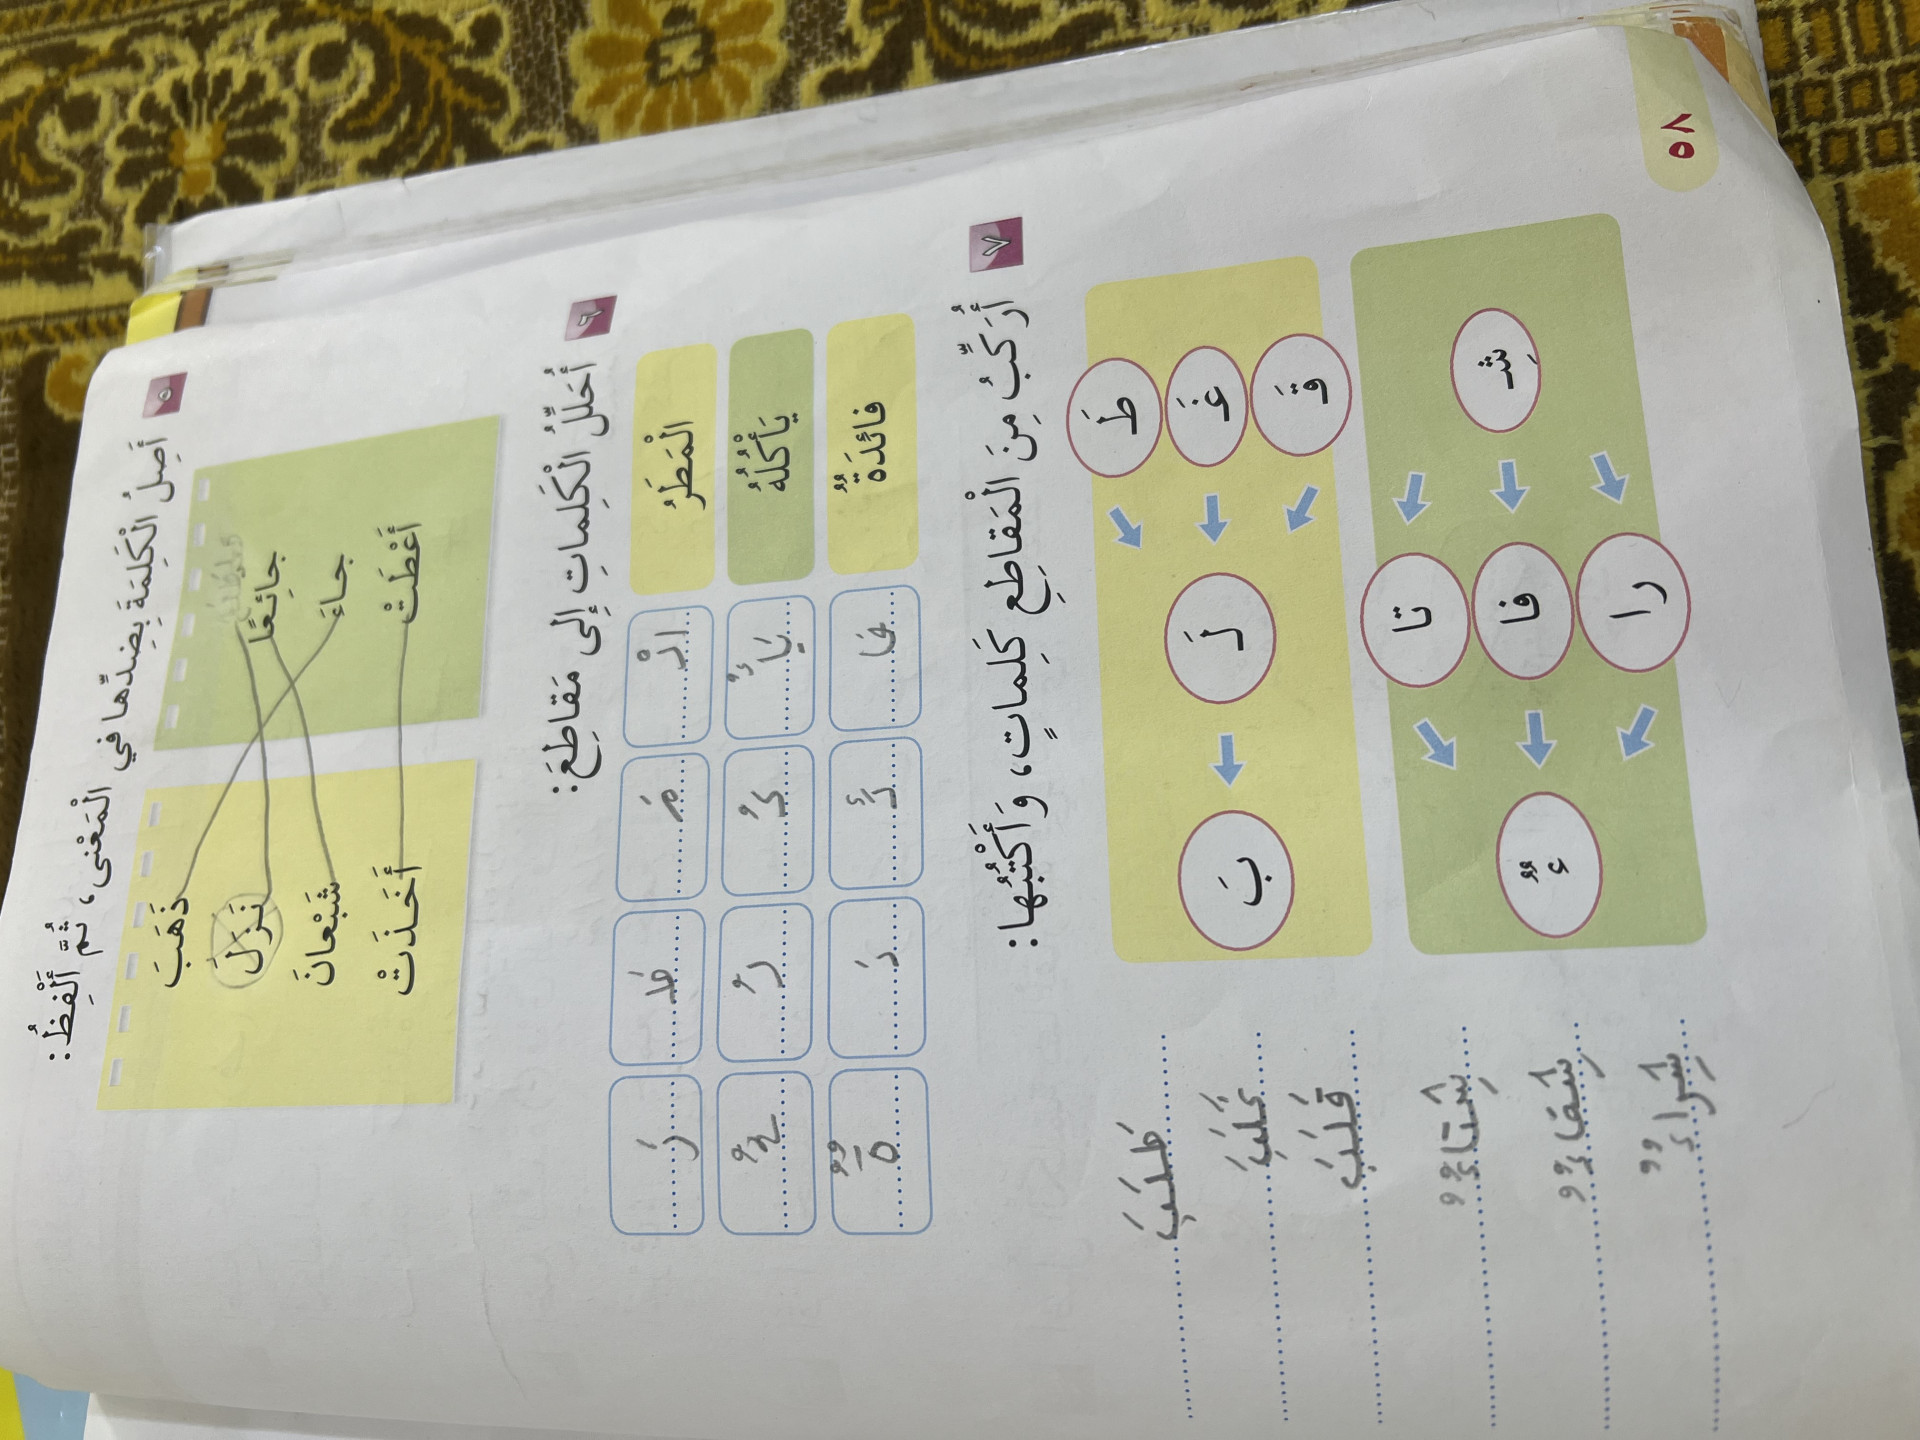 ٥ أَصِلُ الْكَلِمَةَ بِضِدِّها في الْمَعْنى، ثُمَّ أَلْفِظُ:
ذَهَبَ
نَزَلَ
شَبْعانَ
أَخَذَتْ
جائِعًا
جاءَ
أَعْطَتْ
٦ أُحَلِّلُ الْكَلِماتِ إِلى مَقاطِعَ:
الْمَطَرُ الْ مَ طَ رُ
يَأْكُلُهُ
فائِدَةٌ فا ئِ دَ ةٌ
٧ أُرَكِّبُ مِنَ الْمَقاطِعِ كَلِماتٍ، وَأَكْتُبُها:
طَ
غَ لَ بَ
قَ
طَلَبَ
غَلَبَ
قَلَبَ
تا
شِـ فا ءٌ
را
شِتاءٌ
شِفاءٌ
شِراءٌ
٥٨